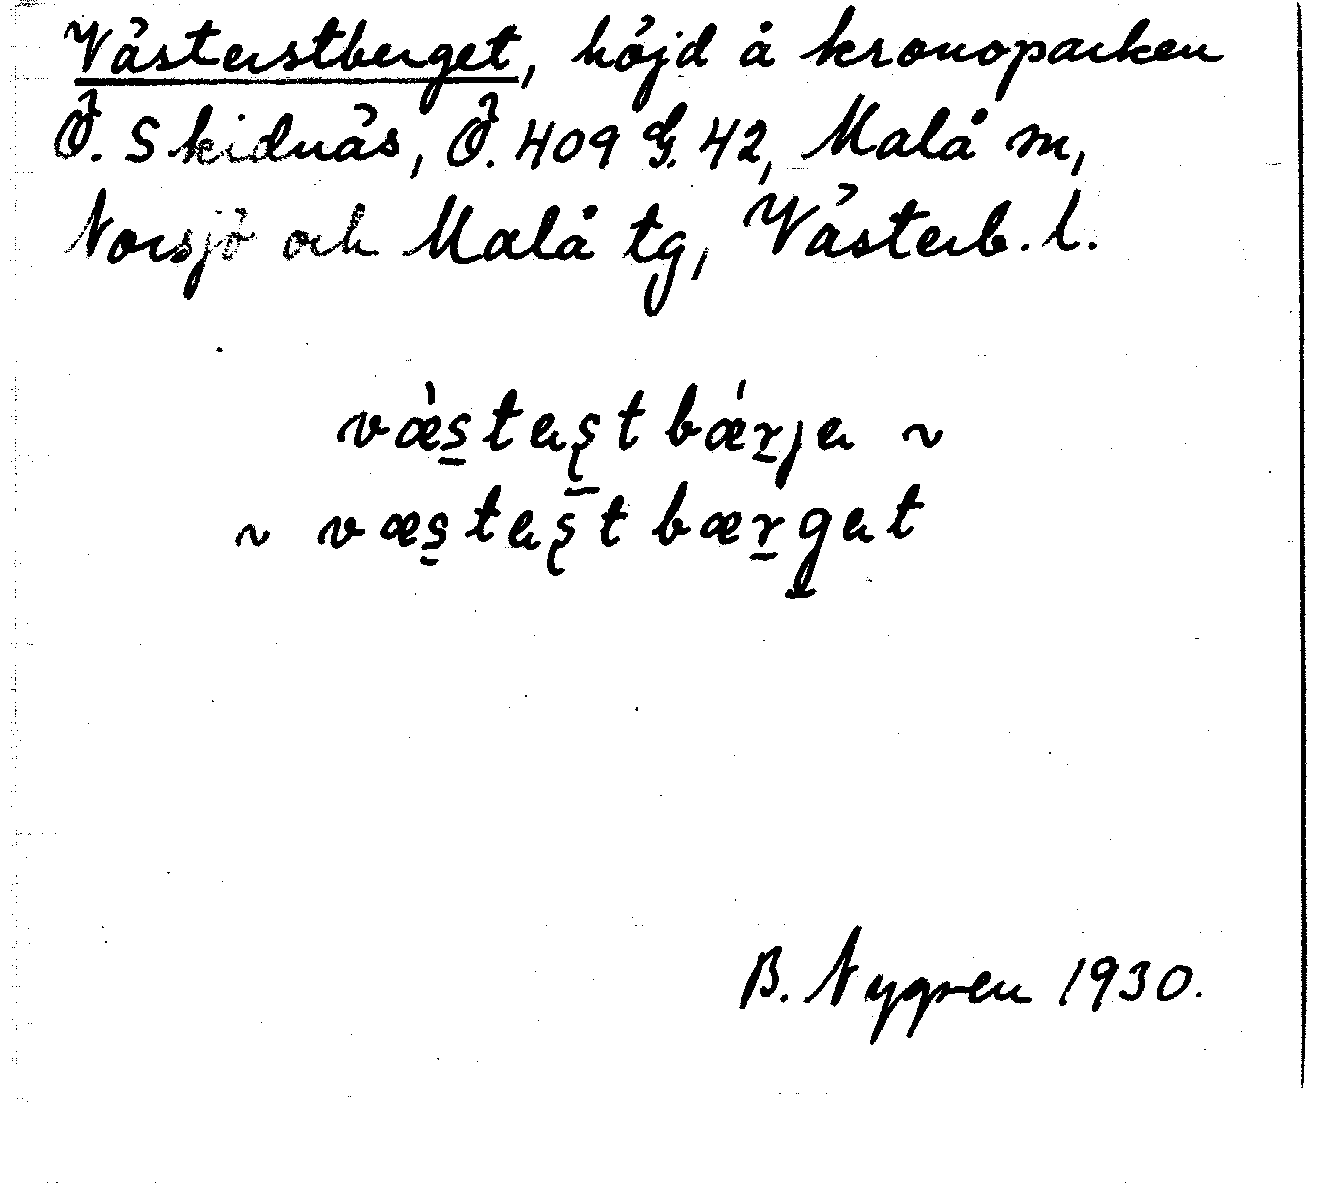 Västerstberget, höjd å kronoparken
Ö. Skidnäs, Ö. 409 G. 42, Malå m,
Norsjö och Malå tg, Västerb. l.
væ̀s̱taʂt bǽṟja ~
~ væs̱taʂt bæṟgat
B. Nygren 1930.